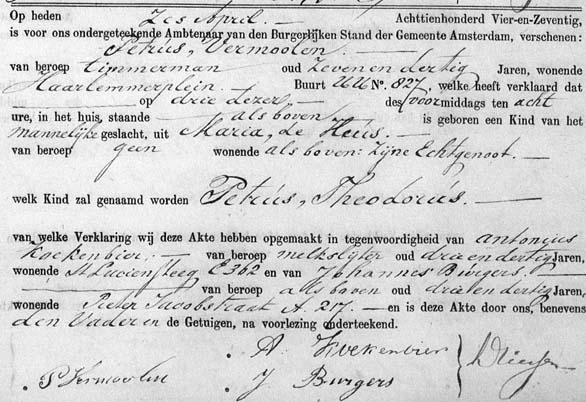 Op heden Zes April. Achttienhonderd Vier-en-Zeventig,
is voor ons ondergeteekende Ambtenaar van den Burgerlijken Stand der Gemeente Amsterdam, verschenen:
Petrus, Vermoolen.
van beroep timmerman oud Zevenendertig Jaren, wonende
Haarlemmerplein. Buurt UU No. 827, welke heeft verklaard dat
op drie dezer des voormiddags ten acht
ure, in het huis, staande als boven is geboren een Kind van het
mannelijke geslacht, uit Maria, de Heus.
van beroep geen wonende als boven: zijne Echtgenoot.
welk Kind zal genaamd worden Petrus, Theodorus.
van welke Verklaring wij deze Akte hebben opgemaakt in tegenwoordigheid van Antonius
Koekenbier. van beroep melkslijter oud drieendertig Jaren,
wonende St Luciensteeg C 362 en van Johannes Burgers.
van beroep als boven oud drieendertig Jaren,
wonende Pieter Jacobstraat A. 217. en is deze Akte door ons, benevens
den Vader en de Getuigen, na voorlezing onderteekend.
A Koekenbier
P Vermoolen J Burgers